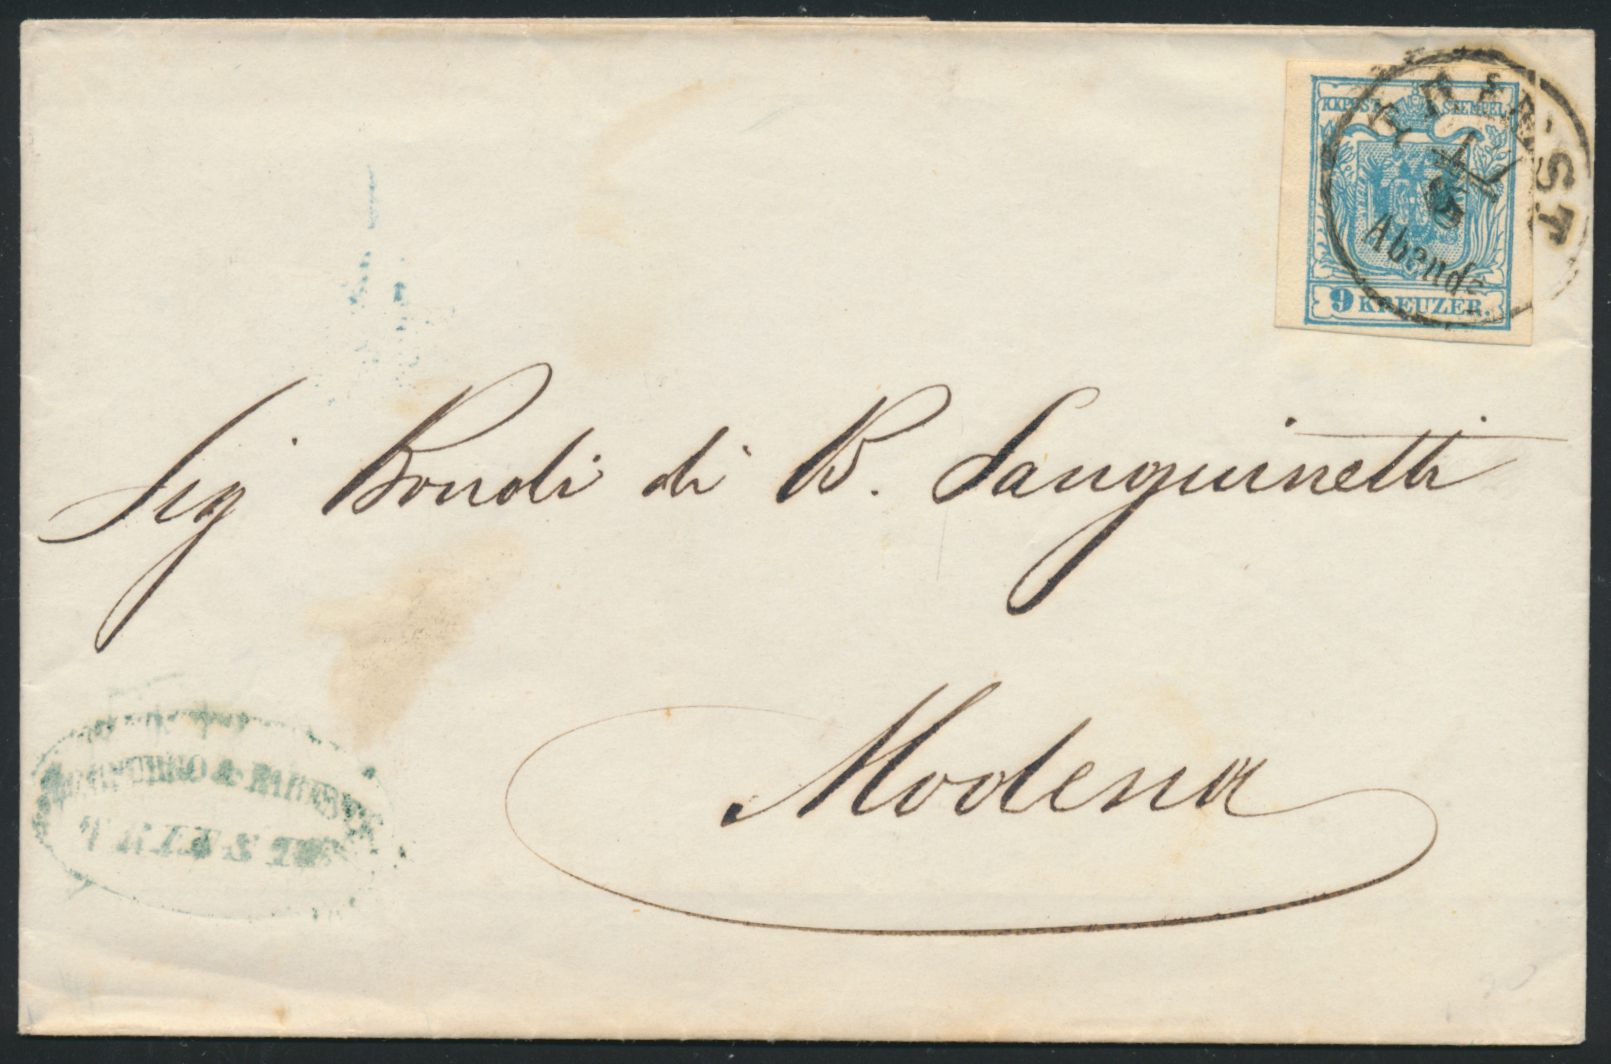 KKPOST STEMPEL
9 KREUZER.
TRIEST
Abends
Sig Bondi di B. Sanguinetti
Modena
TRIEST